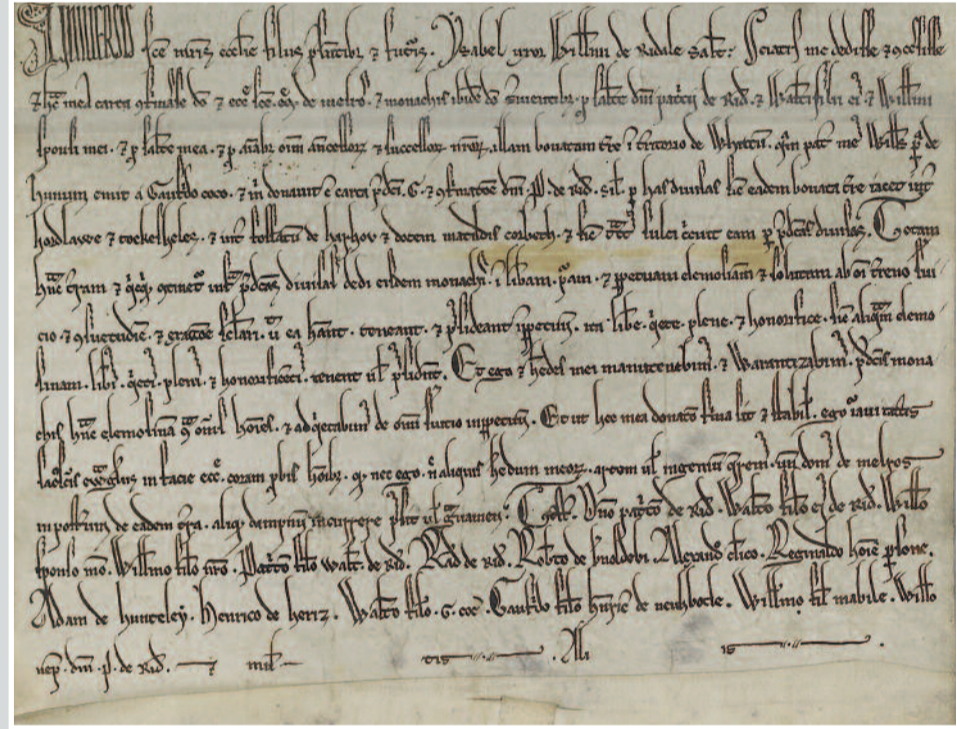 Uniusis sce mris ecclie filiis psentibz ⁊ futis. Ysabel uxor Willmi de Ridale salt. Sciatis me dedisse ⁊ ꝯcessisse
⁊ hc mea carta ꝯfirmasse do ⁊ ecce sce de melros. ⁊ monachis ibide do suientibz. p salute dni patcii de Rid. ⁊ Walti filii ei. ⁊ Willmi
sponsi mei. ⁊ p salute mea. ⁊ p aiabz oim ancessorz ⁊ successorz nrorz. illam bouatam tre i tritorio de Whittun. qm pat me Wills de
hunum emit a Gaufrido coco. ⁊ m donauit c carta pdci. G. ⁊ ꝯfirmatoe dni. P. de Rid. p has diuisas sic eadem bouata tre iacet int
hordlawe ⁊ cockesheles. ⁊ int fossatu de harhov ⁊ docem matildis corbeth. ⁊ sic sulci eam p pdcas diuisas. Totam
hac tram ⁊ qcqd ꝯtinet inf pdcas diuisas dedi eisdem monachis i libam. pam. ⁊ ppetuam elemosiam ⁊ solutam ab oi treno sui
cio. ⁊ ꝯsuetudie. ⁊ exactoe sclari. ut ea hant. teneant. ⁊ psideant ippetuu. ita libe. qete. plene. ⁊ honorifice. sic aliqam elemo
sinam. libi. qeti. pleni. ⁊ honorificeti. tenent ul psidnt. Et ego ⁊ hedes mei manutenebim. ⁊ Warantizabim. pdcis mona
chis hac elemosina ꝯ oms hoies. ⁊ adqetabim de omi suicio inppetuu. Et ut hec mea donato firma sit ⁊ stabil. ego iaui tactis
sacsscis ewgliis in facie ecce. coram pbis hoibz. qd nec ego. n aliquis hedum meorz. artem ul ingeniu qrem. un dom de melros
in postum de eadem tra. aliqd dampnu incurrere possit ul grauamen. Test. Dno patcio de Rid. Walto filio ei de Rid. Willo
sponso meo. Willmo filio nro. Patcio filio Walt. de Rid. Rad de Rid. Robto de Alexand clico. Reginaldo hoie psone.
Adam de hunteley. Henrico de heriz. Walto filio. G. coci. Gaufrido filio hunfrie de neuhbotle. Willmo fil mabile. Willo
nep. dni. P. de Rid. ⁊ mil tis. Ali is.